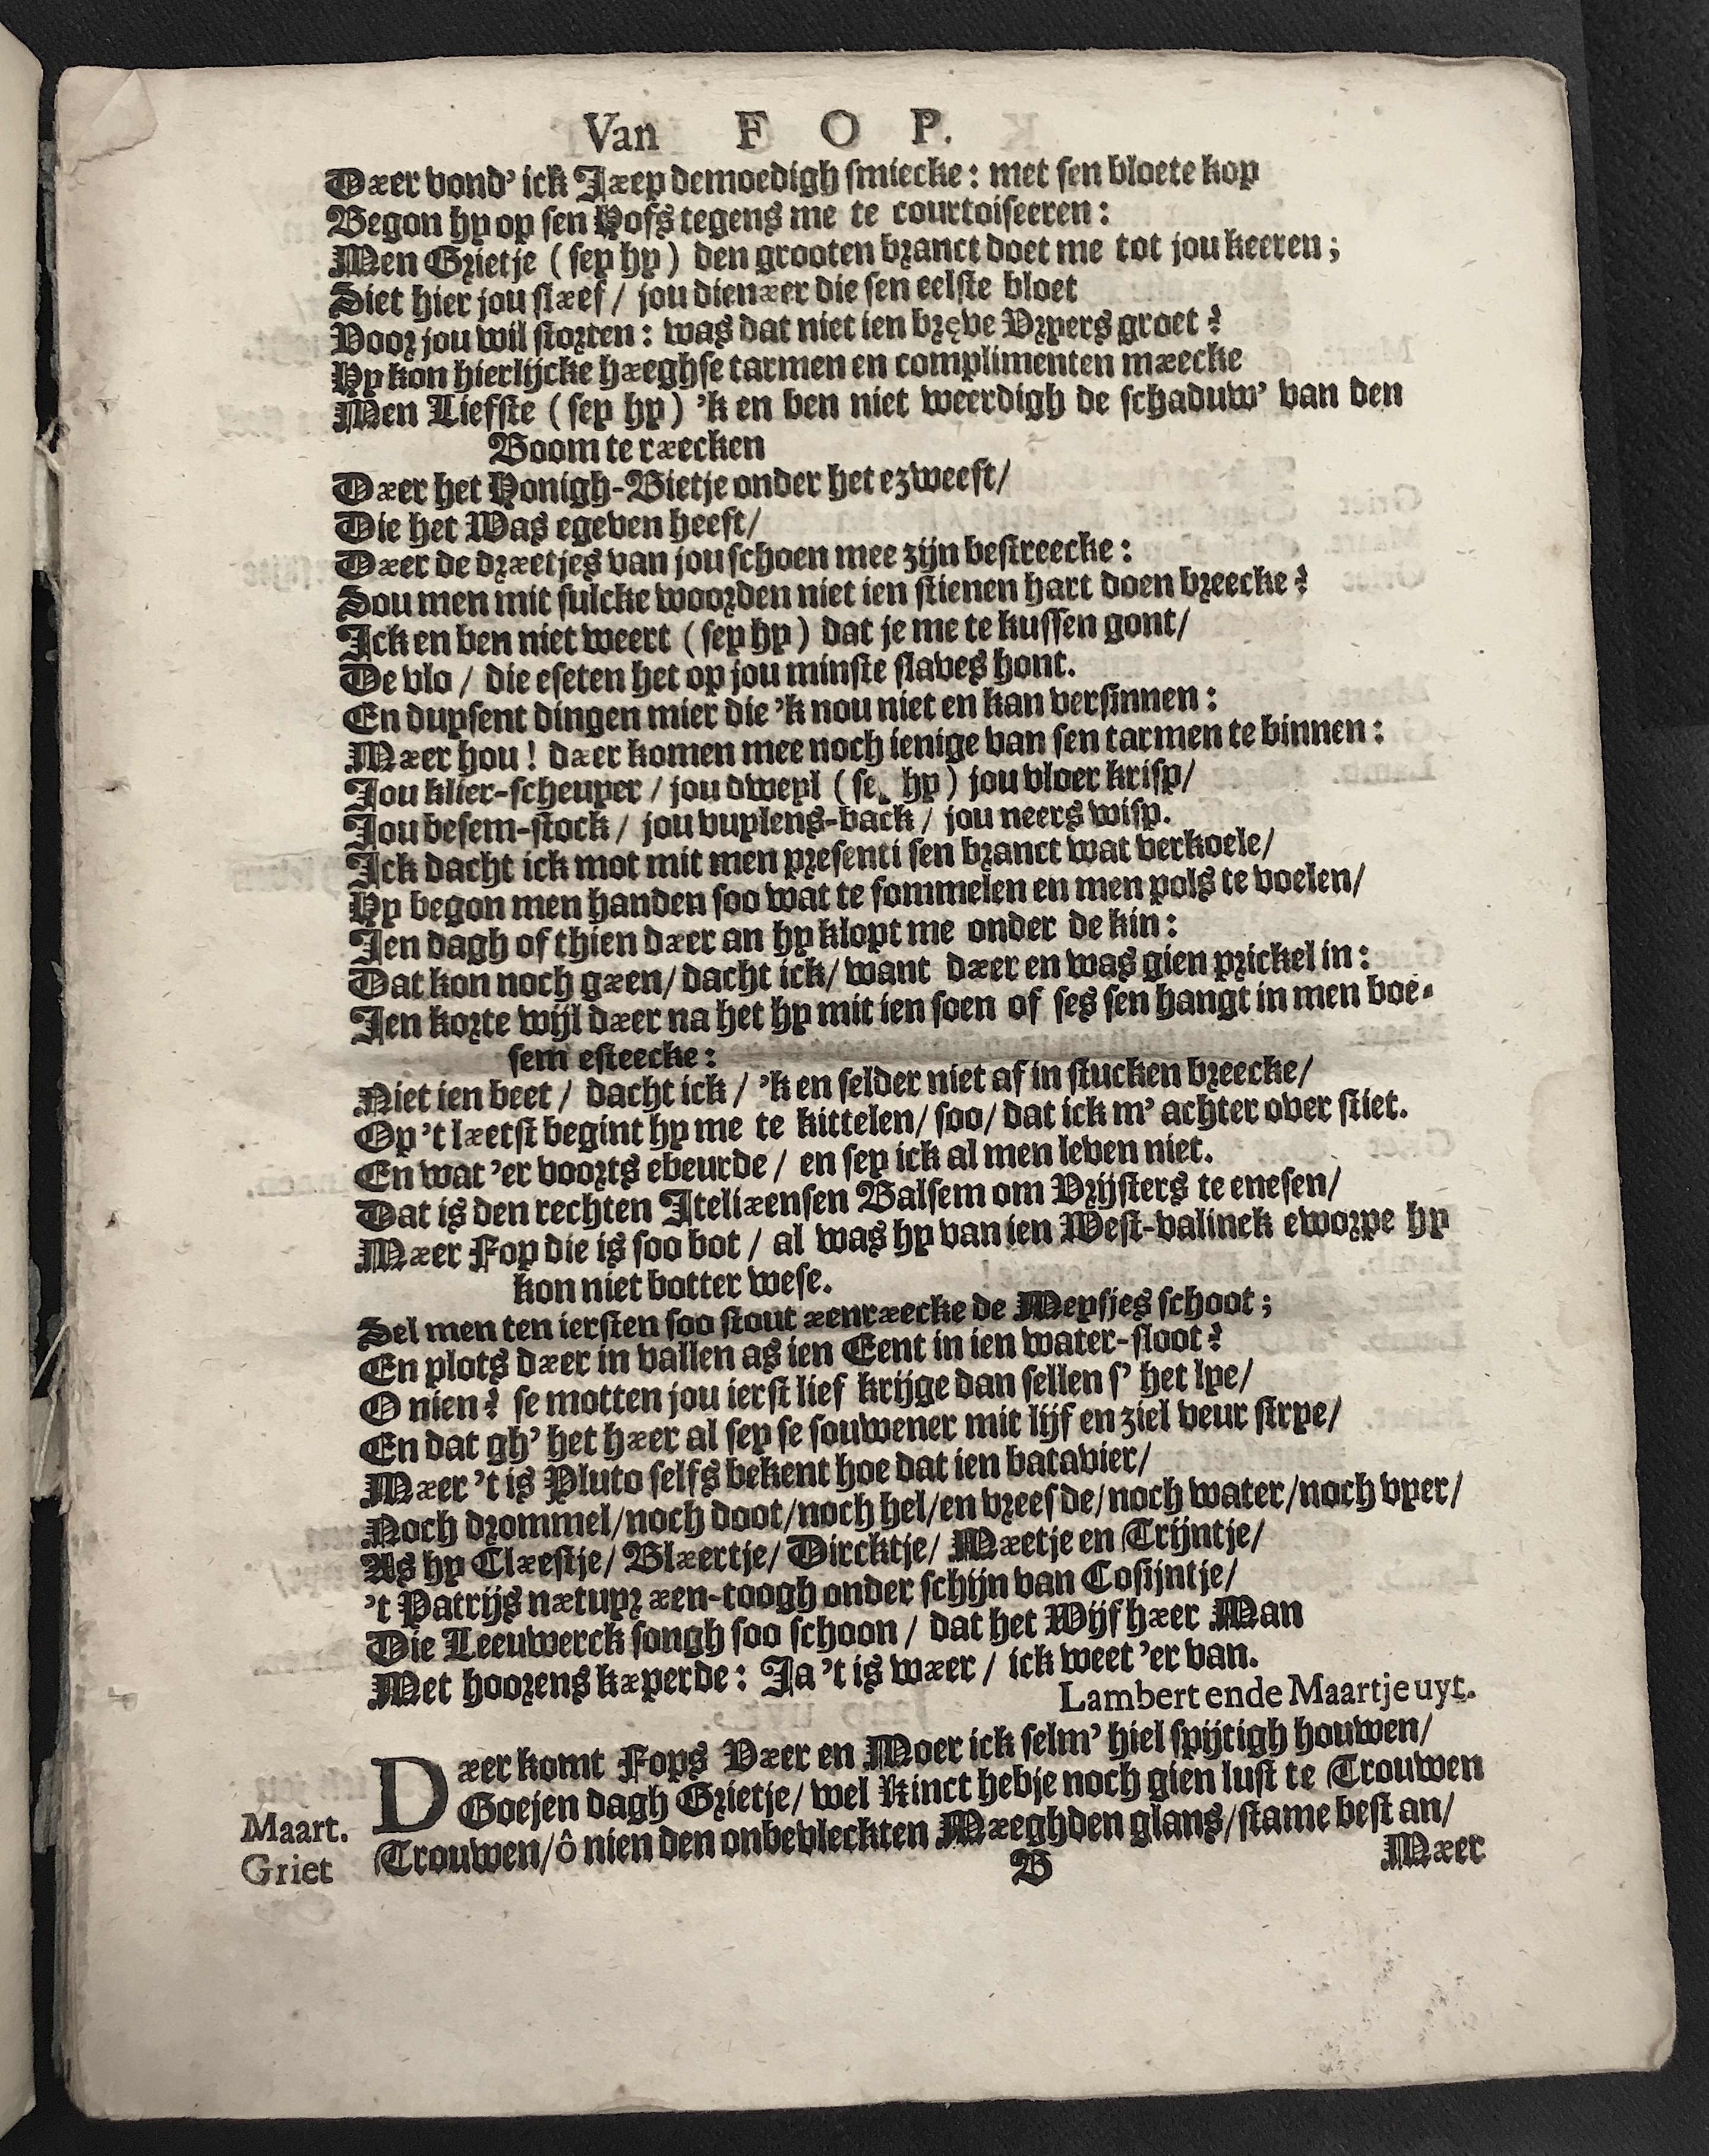 Van F O P.
Dæer vond' ick Jæep demoedigh smiecke: met sen bloete kop
Begon hy op sen Hofs tegens me te courtoiseeren:
Men Grietje (sey hy) den grooten branct doet me tot jou keeren;
Siet hier jou slæef / jou dienæer die sen eelste bloet
Voor jou wil storten: was dat niet ien bręve Vryers groet?
Hy kon hierlijcke hæeghse tarmen en complimenten mæecke
Men Liefste (sey hy) 'k en ben niet weerdigh de schaduw' van den
Boom te ræecken
Dæer het Honigh-Bietje onder het ezweeft/
Die het Was egeven heeft/
Dæer de dræetjes van jou schoen mee zijn bestreecke:
Sou men mit sulcke woorden niet ien stienen hart doen breecke?
Ick en ben niet weert (sey hy) dat je me te kussen gont/
De vlo / die eseten het op jou minste slaves hont.
En duysent dingen mier die 'k nou niet en kan versinnen:
Mæer hou! dæer komen mee noch ienige van sen tarmen te binnen:
Jou klier-scheuyer / jou dweyl (se hy) jou vloer krisp/
Jou besem-stock / jou vuylens-back / jou neers wisp.
Ick dacht ick mot mit men presenti sen branct wat verkoele/
Hy begon men handen soo wat te fommelen en men pols te voelen/
Jen dagh of thien dæer an hy klopt me onder de kin:
Dat kon noch gæen/ dacht ick/ want dæer en was gien prickel in:
Jen korte wijl dæer na het hy mit ien soen of ses sen hangt in men boe-
sem esteecke:
Niet ien beet / dacht ick / 'k en selder niet af in stucken breecke/
Op 't læetst begint hy me te kittelen/ soo/ dat ick m' achter over stiet.
En wat 'er voorts ebeurde / en sey ick al men leven niet.
Dat is den rechten Jteliæensen Balsem om Vrijsters te enesen/
Mæer Fop die is soo bot / al was hy van ien West-valinck eworpe hy
kon niet botter wese.
Sel men ten iersten soo stout æenræecke de Meysjes schoot;
En plots dæer in vallen as ien Eent in ien water-sloot?
O nien? se motten jou ierst lief krijge dan sellen s' het lye/
En dat gh' het hæer al sey se souwener mit lijf en ziel veur strye/
Mæer 't is Pluto selfs bekent hoe dat ien batavier/
Noch drommel/noch doot/noch hel/en vreesde/noch water/noch vyer/
As hy Clæestje/ Blæertje/ Dircktje/ Mæetje en Trijntje/
't Patrijs nætuyr æen-toogh onder schijn van Cosijntje/
Die Leeuwerck songh soo schoon / dat het Wijf hæer Man
Met hoorens kæperde: Ja 't is wæer / ick weet 'er van.
Lambert ende Maartje uyt.
Dæer komt Fops Væer en Moer ick selm' hiel spijtigh houwen/
Maart. Goejen dagh Grietje/ wel Kinct hebje noch gien lust te Trouwen
Griet Trouwen/ô nien den onbevleckten Mæeghden glans/stame best an/
B Mæer